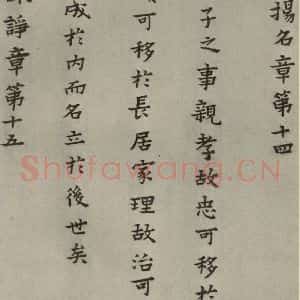 揚名章第十四
子之事親孝故忠可移於
可移於長居家理故治可
成於內而名立於後世矣
諍章第十五
Shufawang.CN